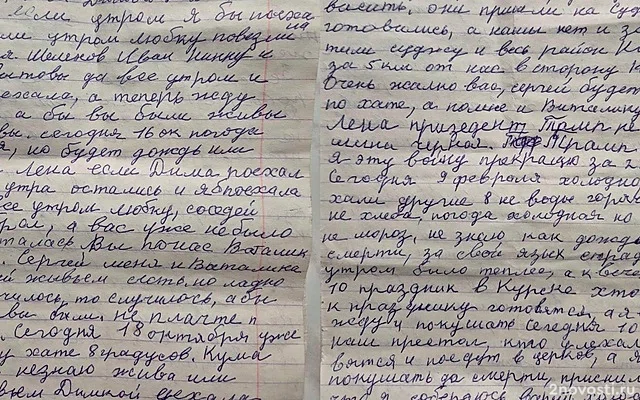 если утром я бы поеха
утром любку повезли
я. Шеленов Иван Нинку и
да все утром и
ехала, а теперь жду
а бы вы были живы
вы. сегодня 16 ок погода
я, но будет дождь или
Лена если Дима поехал
утра остались и я б поехала
се утром любку, соседей
а вас уже небыло
талась Вы погас Виталик
. Сергей меня и Виталика
живьем ладно
чилось, то случилось, а бы
вы были. не плачте п
Сегодня 18 октября уже
у хате 8 градусов. Кума
незнаю жива или
Димкой
они пришли на суд
готовились, а наши нет и за
тили суджу и весь район и
за 5 км от нас в сторону К
Очень жално вас, сергей будет
по хате, а полие и Виталик
Лена призедент Трамп
Трамп
я эту войну прекращю за 2
Сегодня 9 февраля холодно
хали другие 8 не водне горя
не хлеба, погода холодная но
не мороз, не знаю как дожд
смерти, за свой язык страд
утром было теплее, а к вече
10 праздник в Курске хто
к празднику готовятся, а я
жду и покушать сегодня 10
наш престол, кто уехал
вятся и поедут в церков, а я
покушать до смерти, приснил
2novosti.ru